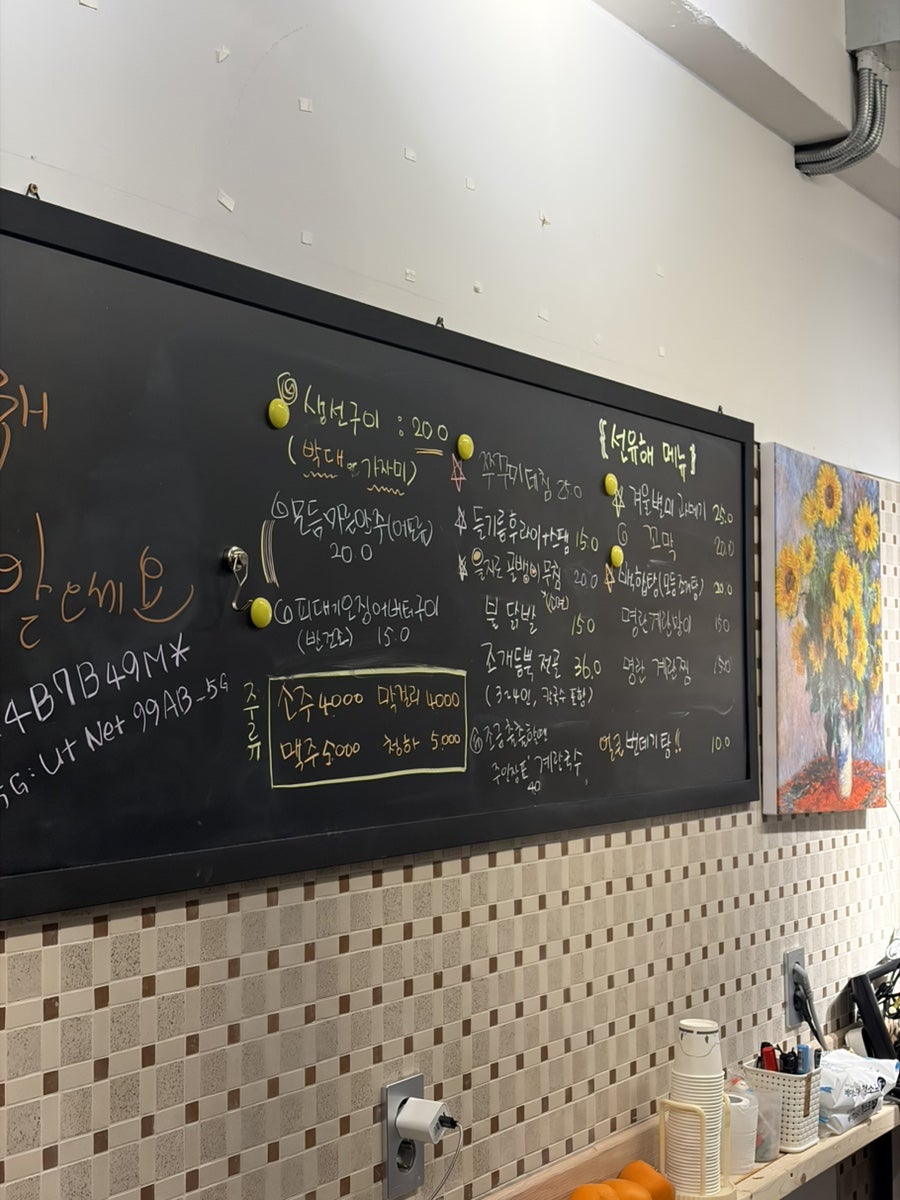 생선구이 : 20.0
(박대 or 가자미)
모듬마른안주(어탕)
20.0
피대기오징어버터구이
(반건조) 15.0
주류
소주 4000 막걸리 4000
맥주 5000 청하 5,000
쭈꾸미데침 25.0
들기름후라이+스팸 15.0
을지로 골뱅이 무침 20.0
불 닭발 15.0
조개듬북 전골 36.0
(3~4인, 칼국수 포함)
조금 출출할땐
주인장표 계란국수
4.0
{선유해 메뉴}
겨울별미 과메기 25.0
꼬막 20.0
백합탕(모듬조개탕) 20.0
명란계란말이 15.0
명란 계란찜 15.0
얼큰 번데기탕!! 10.0
해
4B7B49M*
5G: Ut Net 99AB_5G